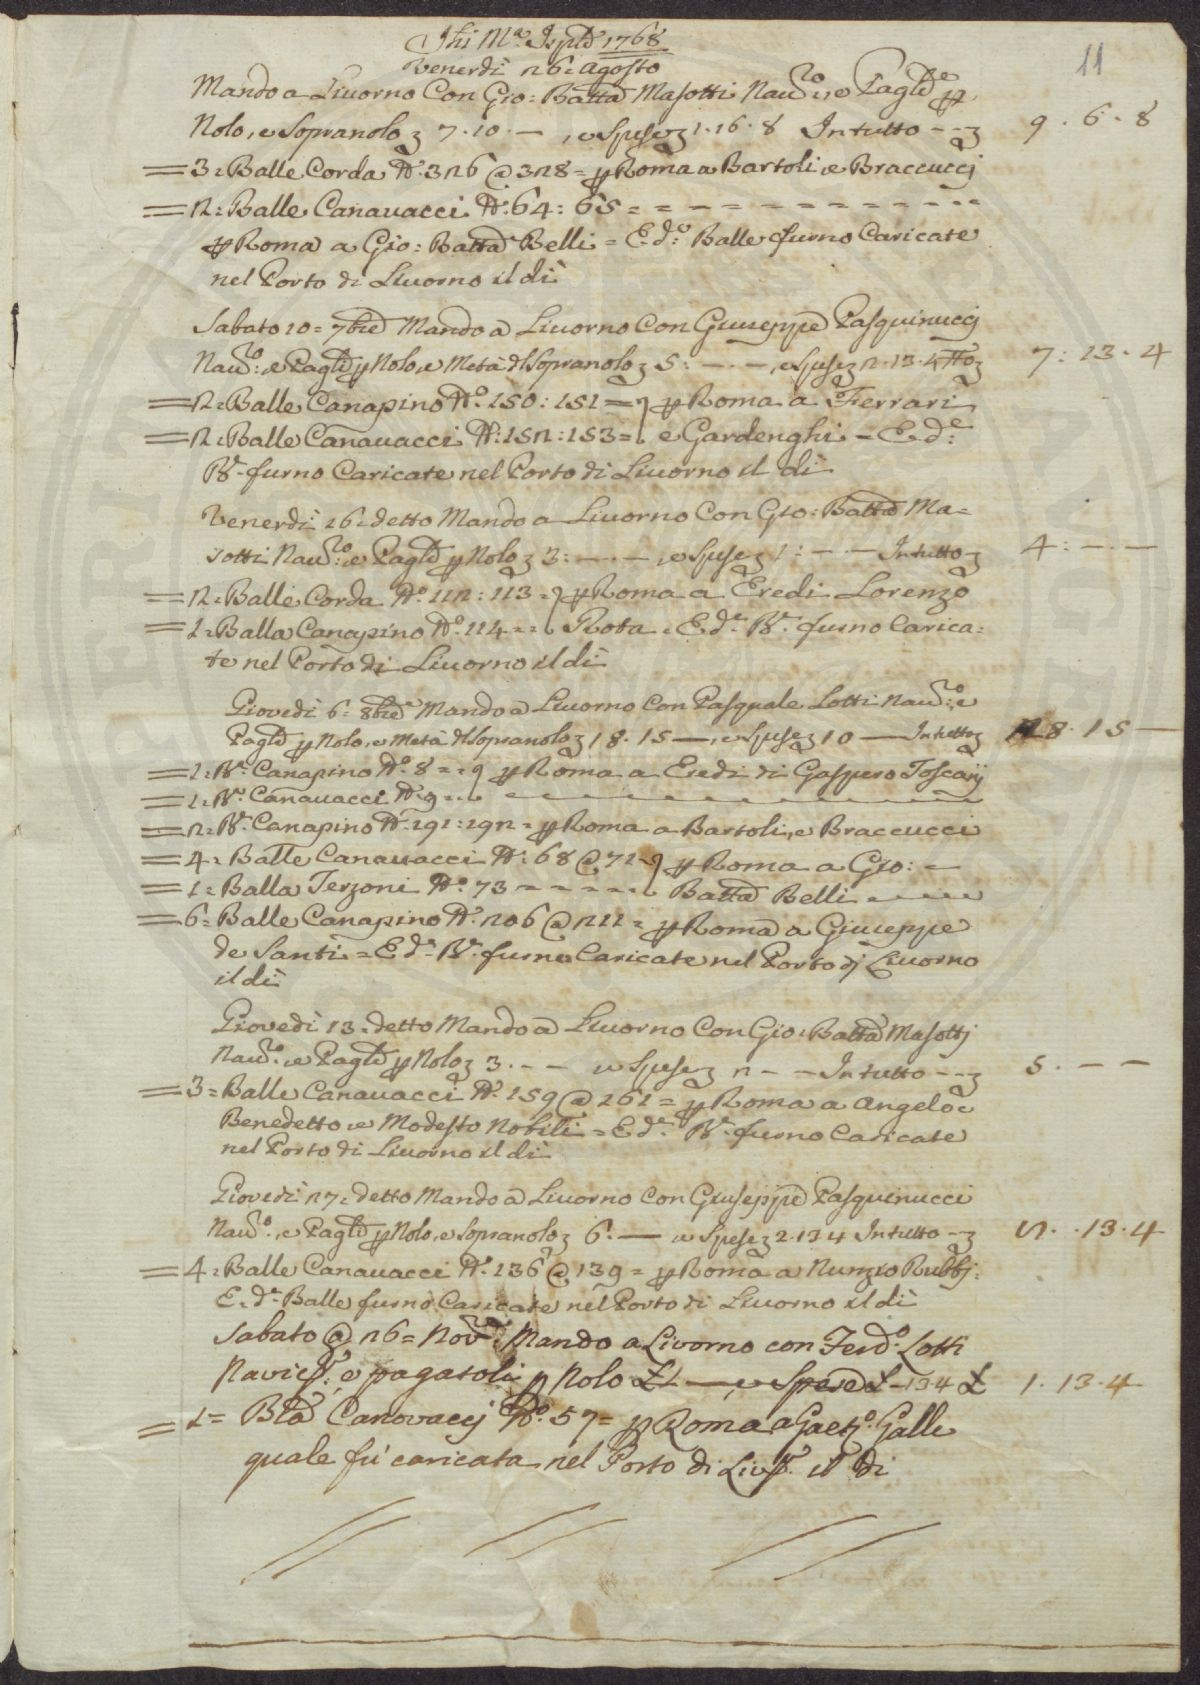 11
Jhs Mª 1768
Venerdì 26 = Agosto
Mando a Liuorno Con Gio: Battª Masotti Nauº:, e Pagtᵉ p
Nolo, e Sopranolo 7.10.—, e Spese 1.16.8 In tutto --- 9.6.8
= 3 = Balle Corda Nº. 326 @ 328 = p Roma a Bartoli, e Braccuccj
= 2 = Balle Canauacci Nº: 64: 65 = = = - - - - - - - - - - -
p Roma a Gio: Battª Belli = E. dº: Balle furno Caricate
nel Porto di Liuorno il dì
Sabato 10 = 7bre Mando a Liuorno Con Giuseppe Pasquinuccj
Nauº:, e Pagt p Nolo, e Metà del Sopranolo 5: —.—, e Spese 2.13.4 7:13.4
= 2 = Balle Canapino Nº. 150: 151 = p Roma a Ferrari
= 2 = Balle Canauacci Nº: 152: 153 = e Gardenghi = E. dᵉ:
Bᵉ. furno Caricate nel Porto di Liuorno il dì
Venerdì 16. detto Mando a Liuorno Con Gio: Battª Ma=
sotti Nauº:, e Pagt p Nolo 3: —.—, e Spese 1: —.— In tutto 4: —.—
= 2 = Balle Corda Nº. 112: 113 = p Roma a Eredi Lorenzo
= 1 = Balla Canapino Nº. 114 = = Rota = E. dᵉ. Bᵉ. furno Carica=
te nel Porto di Liuorno il dì
Giovedì 6 = 8bre Mando a Liuorno Con Pasquale Lotti Nauº:, e
Pagt p Nolo, e Metà del Sopranolo 18.15 —, e Spese 10 — In tutto 28.15 —
= 1 = Bᵃ. Canapino Nº. 8 = = p Roma a Eredi di Gaspero Toscanj
= 1 = Bᵃ. Canauacci Nº. 9 = =
= 2 = Bᵉ. Canapino Nº. 191: 192 = p Roma a Bartoli, e Braccucci
= 4 = Balle Canauacci Nº: 68 @ 71 = p Roma a Gio: =
= 1 = Balla Terzoni Nº. 73 - - - - - - Battª Belli
= 6 = Balle Canapino Nº. 206 @ 211 = p Roma a Giuseppe
de Santi = E dᵉ. Bᵉ. furno Caricate nel Porto dj Liuorno
il dì
Giovedì 13 = detto Mando a Liuorno Con Gio: Battª Masottj
Nauº:, e Pagt p Nolo 3.-- e Spese 2 -- In tutto --- 5.—.—
= 3 = Balle Canauacci Nº. 159 @ 161 = p Roma a Angelo
Benedetto, e Modesto Nobili = E dᵉ. Bᵉ. furno Caricate
nel Porto di Liuorno il dì
Giovedì 27 = detto Mando a Liuorno Con Giuseppe Pasquinucci
Nauº:, e Pagt p Nolo, e Sopranolo 6.— e Spese 2.13 4 In tutto -- 13.4
= 4 = Balle Canauacci Nº. 136 @ 139 = p Roma a Nunzio Rubbj:
E. dᵉ. Balle furno Caricate nel Porto di Liuorno il dì
Sabato @ 26 = Novᵉ. Mando a Livorno con Ferdº. Lotti
Navicᵉ., e pagatoli p Nolo £1 —, e Spese £ - 13 4 £ 1.13.4
= 1 = Blª Canovaccj Nº. 57 = p Roma a Gaetº. Galli
quale fù caricata nel Porto di Livº. il dì